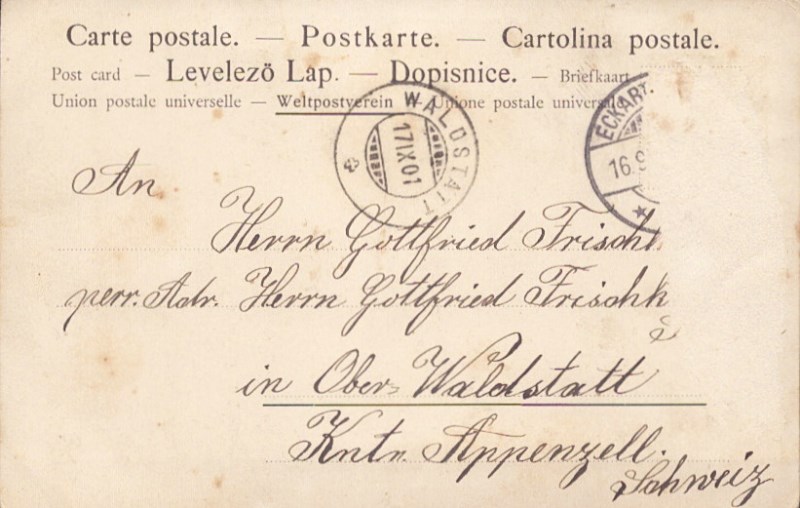 Carte postale. — Postkarte. — Cartolina postale.
Post card — Levelező Lap. — Dopisnice. — Briefkaart
Union postale universelle — Weltpostverein — Unione postale universale
WALDSTATT
17 IX 01
ECKART
16.9
An
Herrn Gottfried Frischk
perr. Adr. Herrn Gottfried Frischk
in Ober-Waldstatt
Kntn Appenzell.
Schweiz